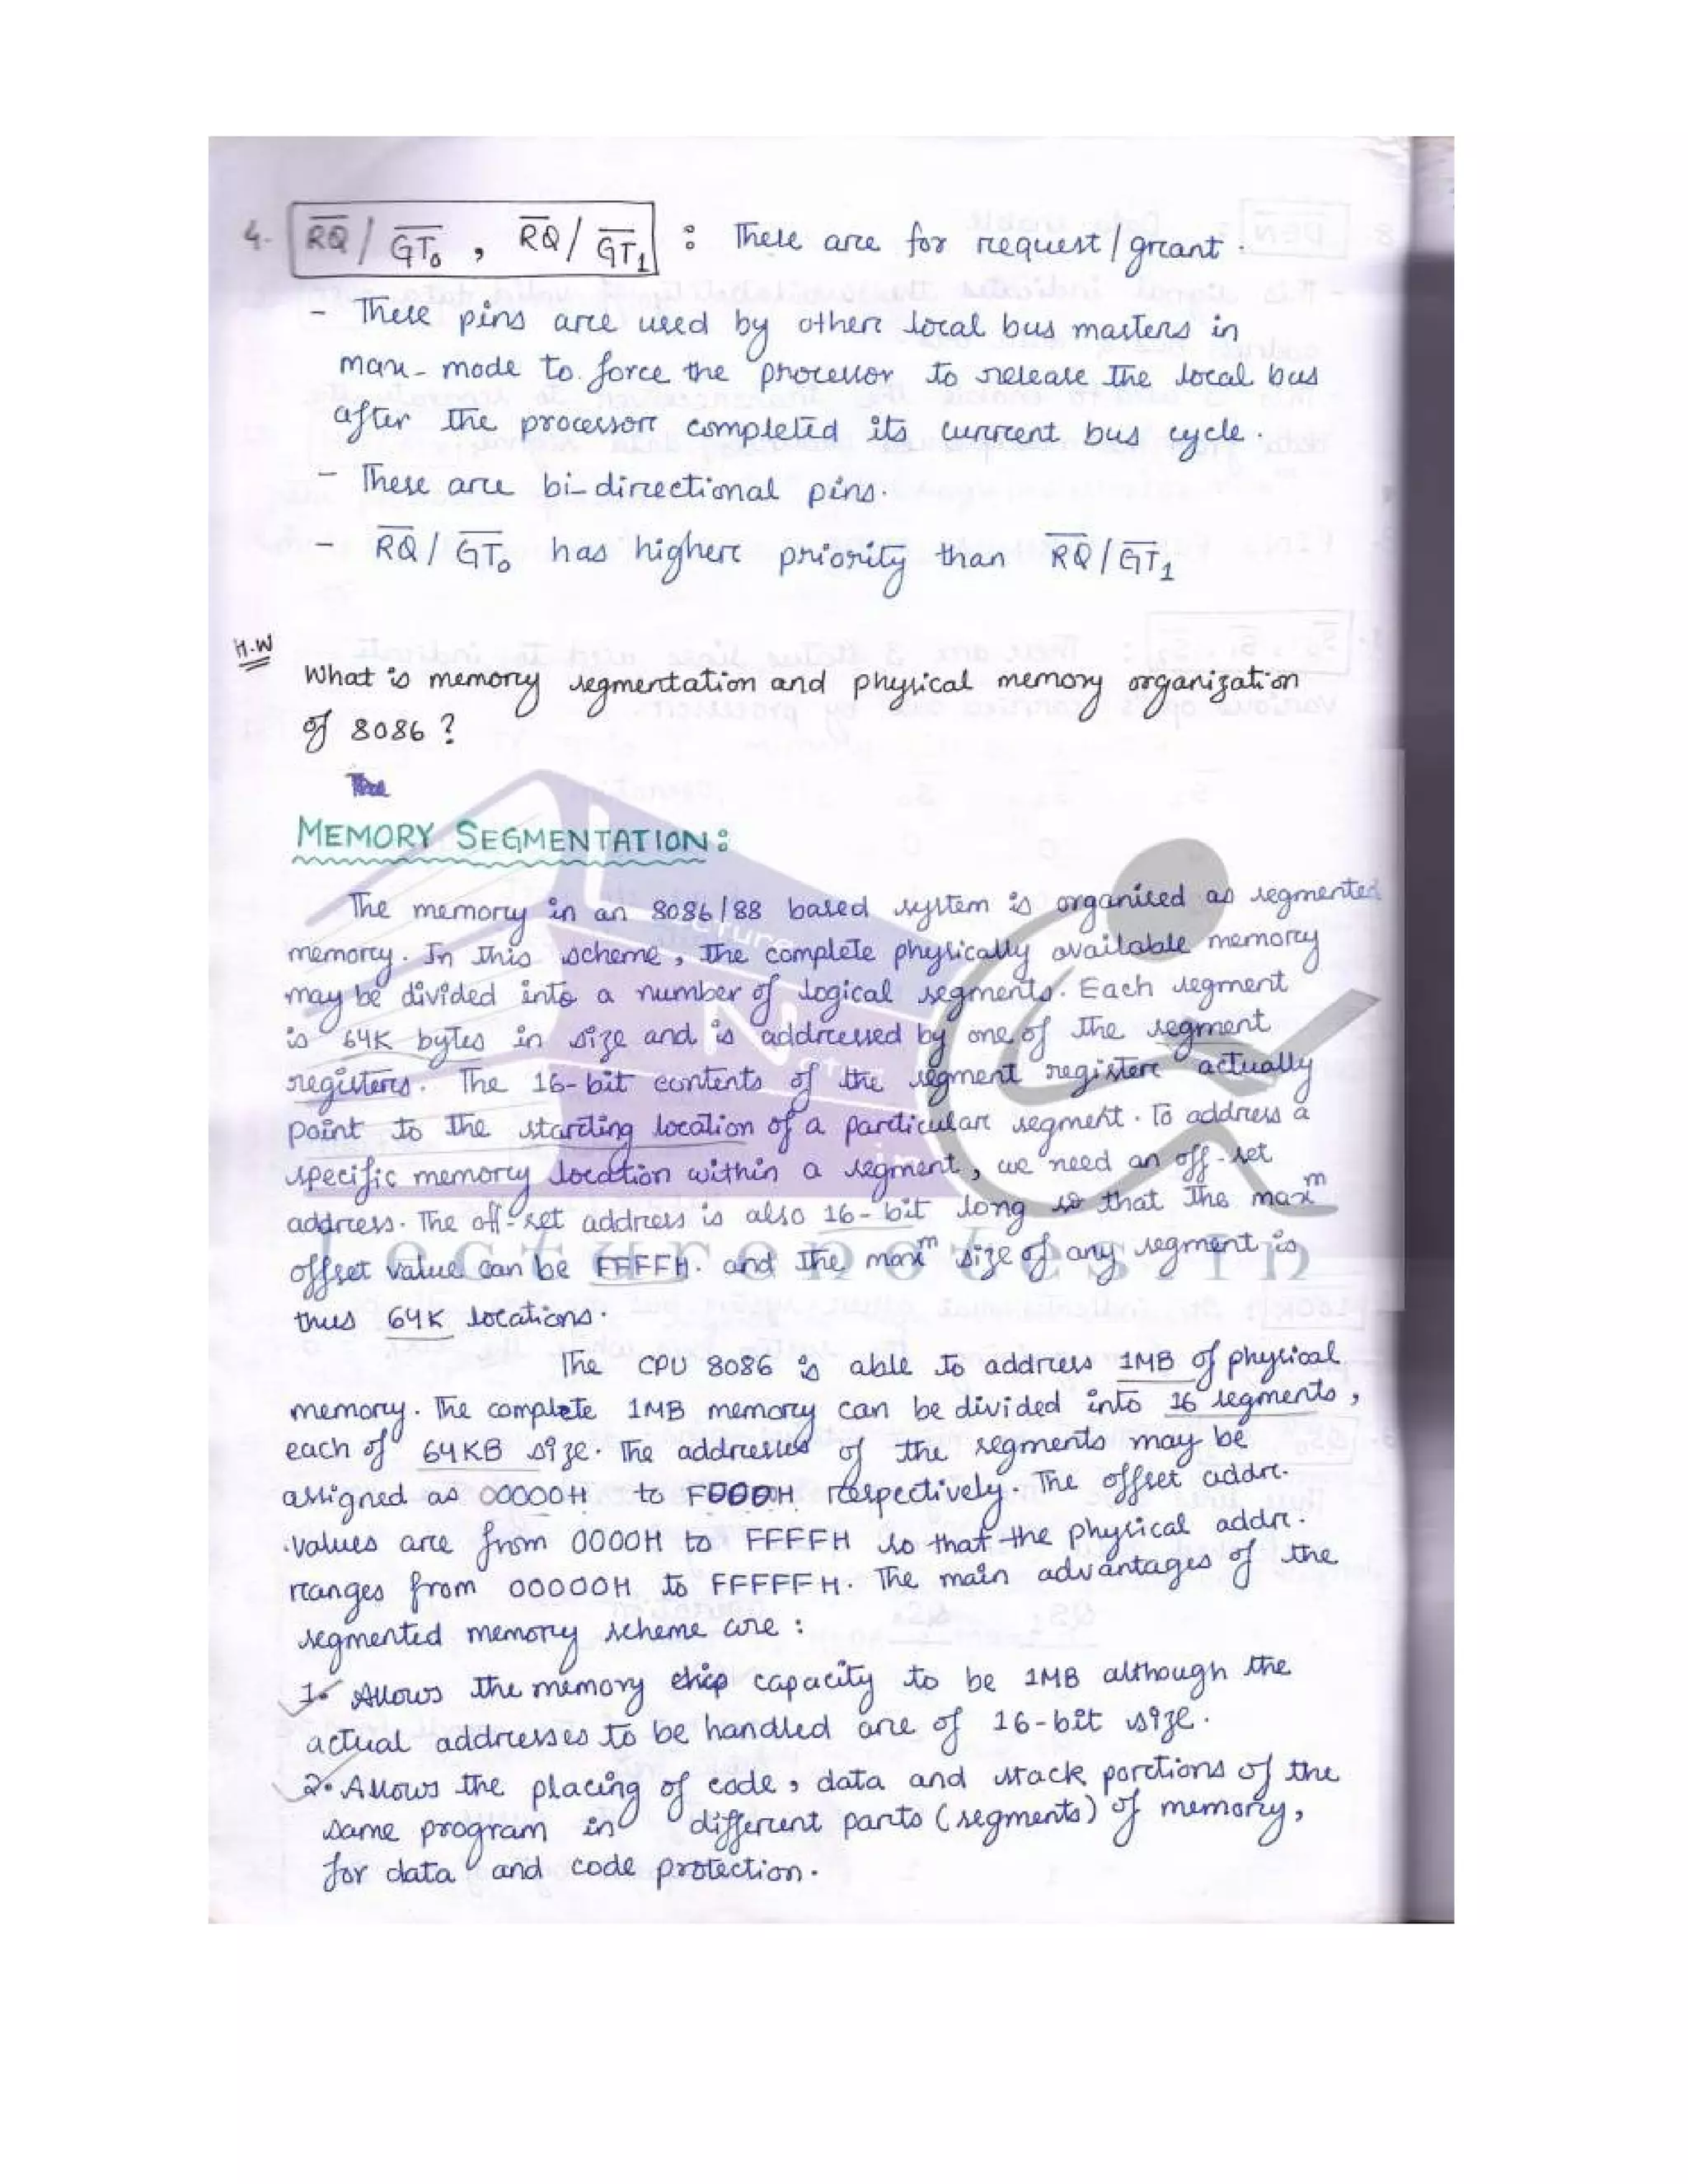 4. R̅Q̅ / G̅T̅₀ , R̅Q̅ / G̅T̅₁ : These are for request / grant.
- These pins are used by other local bus masters in
max- mode to force the processor to release the local bus
after the processor completed its current bus cycle.
- These are bi-directional pins.
- R̅Q̅ / G̅T̅₀ has higher priority than R̅Q̅ / G̅T̅₁
H.W
What is memory segmentation and physical memory organization
of 8086 ?
The
MEMORY SEGMENTATION :
The memory in an 8086/88 based system is organised as segmented
memory. In this scheme, the complete physically available memory
may be divided into a number of logical segments. Each segment
is 64K bytes in size and is addressed by one of the segment
registers. The 16-bit contents of the segment register actually
point to the starting location of a particular segment. To address a
specific memory location within a segment, we need an off-set
address. The off-set address is also 16-bit long so that the maxᵐ
offset value can be FFFFH. and the maxᵐ size of any segment is
thus 64K locations.
The CPU 8086 is able to address 1MB of physical
memory. The complete 1MB memory can be divided into 16 segments,
each of 64KB size. The addresses of the segments may be
assigned as 00000H to F000H respectively. The offset addr.
values are from 0000H to FFFFH so that the physical addr.
ranges from 00000H to FFFFFH. The main advantages of the
segmented memory scheme are :
1. Allows the memory chip capacity to be 1MB although the
actual addresses to be handled are of 16-bit size.
2. Allows the placing of code, data and stack portions of the
same program in different parts (segments) of memory,
for data and code protection.
Lecture Notes.in
Lecturenotes.in